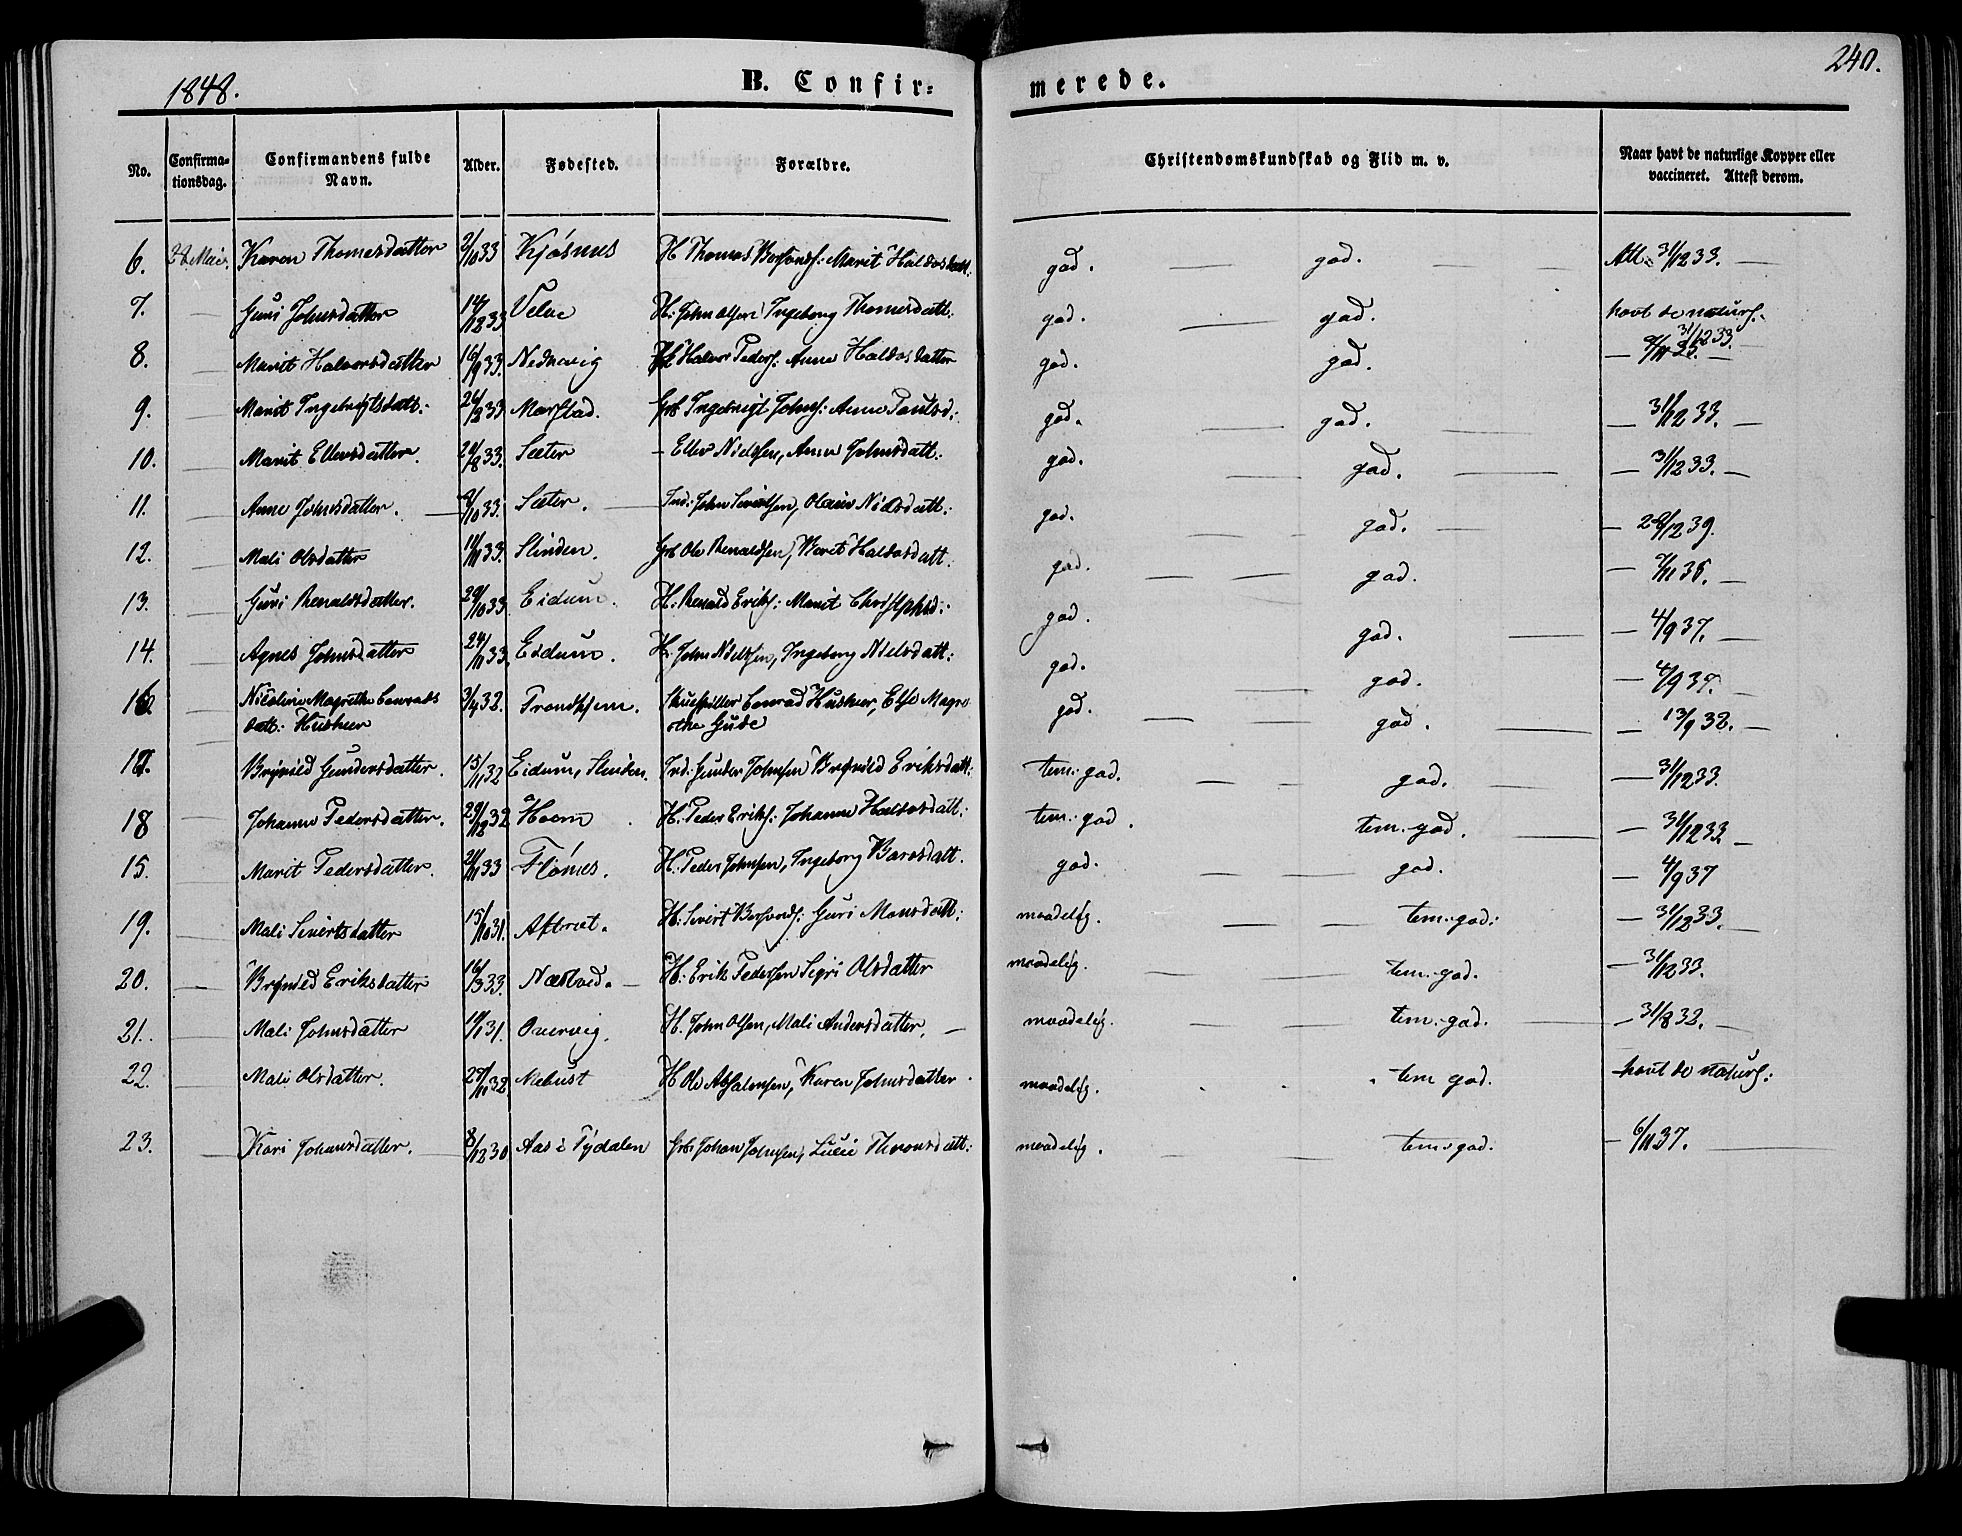 1848. B. Confir: merede. 240.
No. Confirma-tionsdag. Confirmandens fulde Navn. Alder. Fødested. Forældre. Christendomskundskab og Flid m. v. Naar havt de naturlige Kopper eller vaccineret. Attest derom.
6. Mai. Karen Thomesdatter 2/10 33 Kjøsnes H Thomas Marit Haldosdatt: god. — god. — Att. 31/12 33. —
7. — Guri Johnsdatter 14/12 33 Velve H: John Olsen Ingeborg Thomesdatt: god. — god. havt de naturl. 31/12 33.
8. — Marit Halvorsdatter 16/9 33. Nedrevig Halvor Peders: Anne Haldosdatter god. god. —
9. — Marit Ingebrigtsdatt: 24/12 33 Marstad. Grb Ingebrigt Johns: Anne Paulsd: god. — god. — — 31/12 33. —
10. — Marit Ellevsdatter. 20/8 33. Sæter — Ellev Nielssen, Anne Johnsdatt: god. — god. — — 31/12 33. —
11. — Anne Johnsdatter. — /10 33. Sæter. — Ind: John Sivertsen, Nielsdatt: god. — god. — — 28/12 39.
12. — Mali Olsdatter 11/11 33. Slinden. Grb Ole Renaldsen, Beret Haldosdatt: god. — — god. — 7/11 35. —
13. — Guri Renaldsdatter. 29/10 33 Eidum. H: Renald Eriks: Marit god. god. — — 4/9 37. —
14. — Agnes Johnsdatter 24/11 33. Eidum. H. John Nielssen, Ingeborg Nielsdatt: god. — god. — 4/9 37. —
16. Nicoline Magrethe Conrads 3/4 32. Trondhjem. Skuespiller Conrad Huskeer, Else Magre god. — — god. — — 13/9 32. —
— datt: Huskeer the Gude
17. Brynild Gundersdatter. 15/11 32 Eidum, Slinden. Ind: Gunder Johnsen Brynild Eriksdatt: tem: god. — — god. — — 31/12 33.
18 — Johanne Pedersdatter. 29/12 32 Hoem H: Peder Eriks: Johanne Haldorsdatt: tem: god. tem: god. — — 31/12 33. —
15. Marit Pedersdatter. 21/11 33 Flønes. H: Peder Johnsen, Ingeborg Barosdatt. god. — — god. — 4/9 37
19. — Mali Sivertsdatter 15/10 31. Aftret. H: Sivert Guri Monsdatt: maadelig. — — tem: god: — 31/12 33. —
20. — Brynild Eriksdatter 16/3 33. Næsvold. — H: Erik Pedersen Sigri Olsdatter maadelig. — — tem: god. — 31/12 33.
21. Mali Johnsdatter 31. Overvig. H. John Olsen, Mali Andersdatter. — maadelig. — — tem: god. — — 31/8 32. —
22. — Mali Olsdatter. 27/11 32. Mebust H Ole Absalonsen, Karen Johnsdatter. maadelig. . . . tem god. havt de naturl:
23. — Kari Johansdatter. — 8/12 30 Aas i Tydalen Grb: Johan Johnsen, Lucie Thronsdatt: maadelig. — — tem: god. — 6/11 37. —